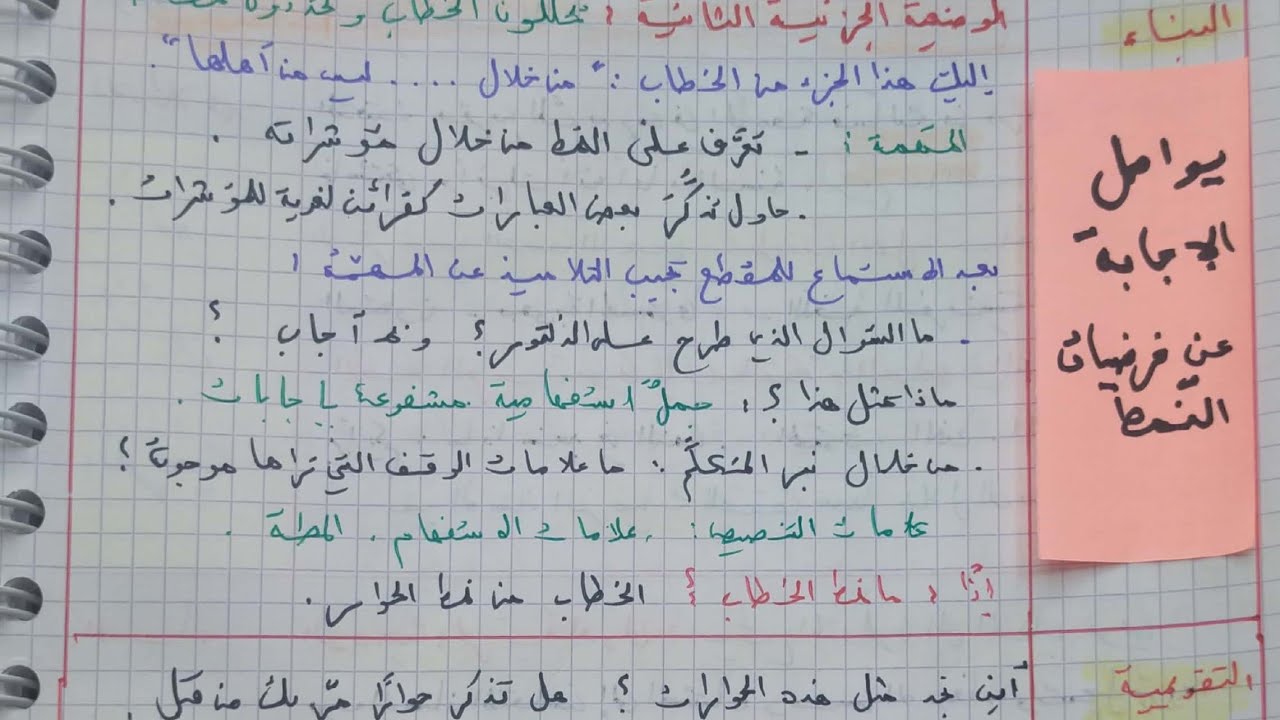 البناء
الوضعية الجزئية الثانية : يحللون الخطاب ويحددون
إليك هذا الجزء من الخطاب : "من خلال .... ليس من أهلها".
المهمة : - تعرّف على النمط من خلال مؤشراته .
. حاول تذكّر بعض العبارات كقرائن لغوية للمؤشرات .
بعد الاستماع للمقطع يجيب التلاميذ عن المهمة :
- ما السؤال الذي طرح ؟ أجاب ؟
ماذا تمثل هذا ؟ : جملٌ استفهامية مشفوعة بإجابات .
. من خلال نبر المتكلّم : ما علامات الوقف التي تراها موجودة ؟
علامات التنصيص : علامات الاستفهام . المطة .
إذًا : ما نمط الخطاب ؟ الخطاب من نمط الحوار .
يواصل
الإجابة
عن فرضيات
النمط
التقويمية
أين نجد مثل هذه الحوارات ؟ هل تذكر حوارًا مرّ بك من قبل